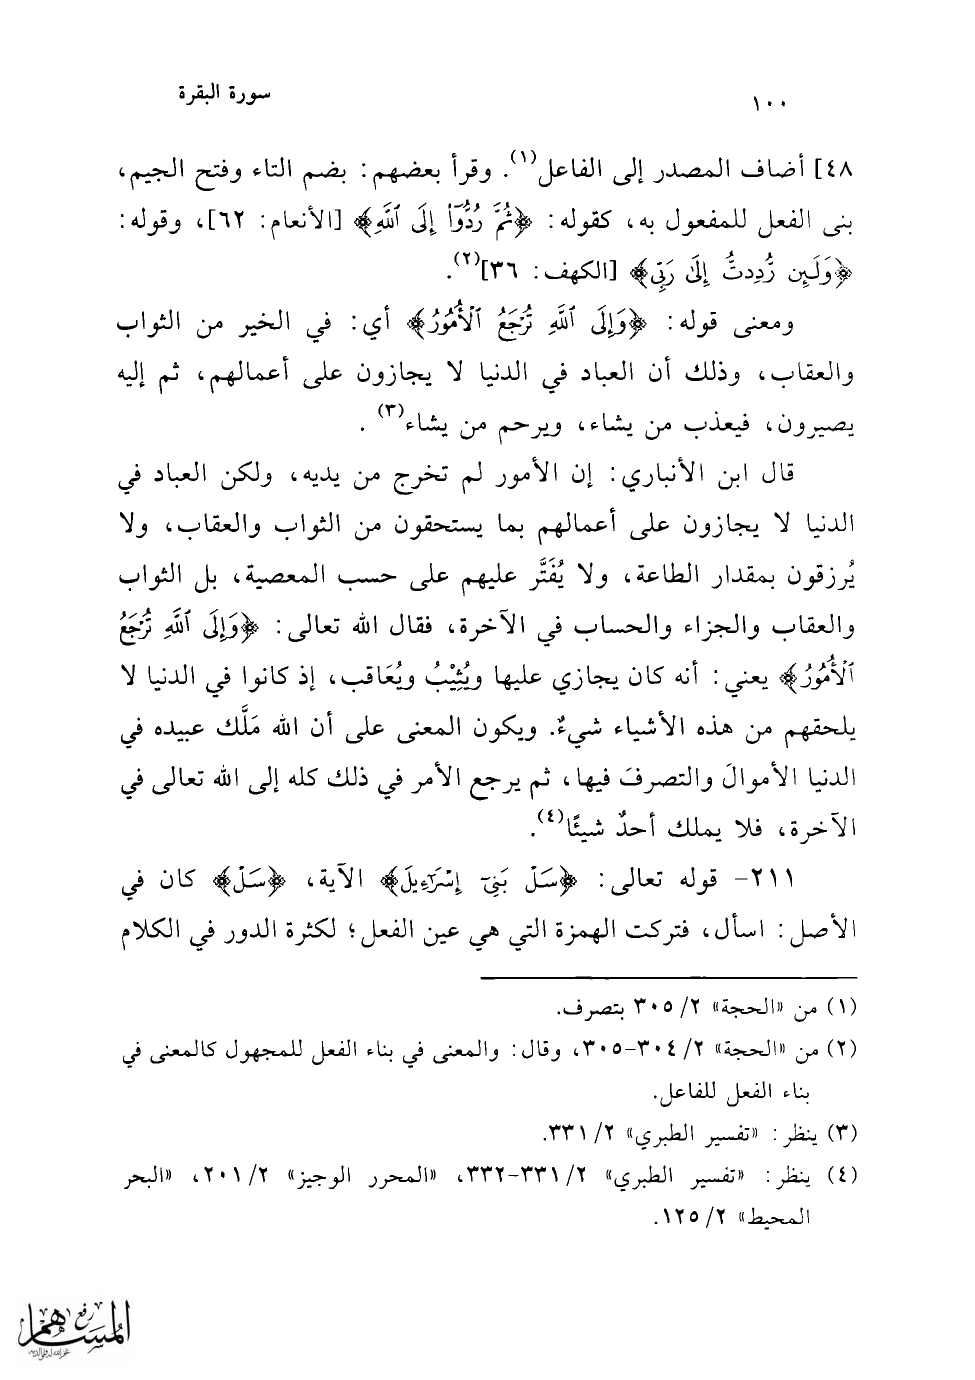 ١٠٠ سورة البقرة
٤٨] أضاف المصدر إلى الفاعل(١). وقرأ بعضهم: بضم التاء وفتح الجيم،
بنى الفعل للمفعول به، كقوله: ﴿ثُمَّ رُدُّوٓا۟ إِلَى ٱللَّهِ﴾ [الأنعام: ٦٢]، وقوله:
﴿وَلَئِن رُّدِدتُّ إِلَىٰ رَبِّى﴾ [الكهف: ٣٦](٢).
ومعنى قوله: ﴿وَإِلَى ٱللَّهِ تُرْجَعُ ٱلْأُمُورُ﴾ أي: في الخير من الثواب
والعقاب، وذلك أن العباد في الدنيا لا يجازون على أعمالهم، ثم إليه
يصيرون، فيعذب من يشاء، ويرحم من يشاء(٣) .
قال ابن الأنباري: إن الأمور لم تخرج من يديه، ولكن العباد في
الدنيا لا يجازون على أعمالهم بما يستحقون من الثواب والعقاب، ولا
يُرزقون بمقدار الطاعة، ولا يُقَتَّر عليهم على حسب المعصية، بل الثواب
والعقاب والجزاء والحساب في الآخرة، فقال الله تعالى: ﴿وَإِلَى ٱللَّهِ تُرْجَعُ
ٱلْأُمُورُ﴾ يعني: أنه كان يجازي عليها ويُثِيْبُ ويُعَاقب، إذ كانوا في الدنيا لا
يلحقهم من هذه الأشياء شيءٌ. ويكون المعنى على أن الله مَلَّك عبيده في
الدنيا الأموالَ والتصرفَ فيها، ثم يرجع الأمر في ذلك كله إلى الله تعالى في
الآخرة، فلا يملك أحدٌ شيئًا(٤).
٢١١- قوله تعالى: ﴿سَلْ بَنِىٓ إِسْرَٰٓءِيلَ﴾ الآية، ﴿سَلْ﴾ كان في
الأصل: اسأل، فتركت الهمزة التي هي عين الفعل؛ لكثرة الدور في الكلام
(١) من «الحجة» ٢/ ٣٠٥ بتصرف.
(٢) من «الحجة» ٢/ ٣٠٤-٣٠٥، وقال: والمعنى في بناء الفعل للمجهول كالمعنى في
بناء الفعل للفاعل.
(٣) ينظر: «تفسير الطبري» ٢/ ٣٣١.
(٤) ينظر: «تفسير الطبري» ٢/ ٣٣١-٣٣٢، «المحرر الوجيز» ٢/ ٢٠١، «البحر
المحيط» ٢/ ١٢٥.
رفع
المساهم